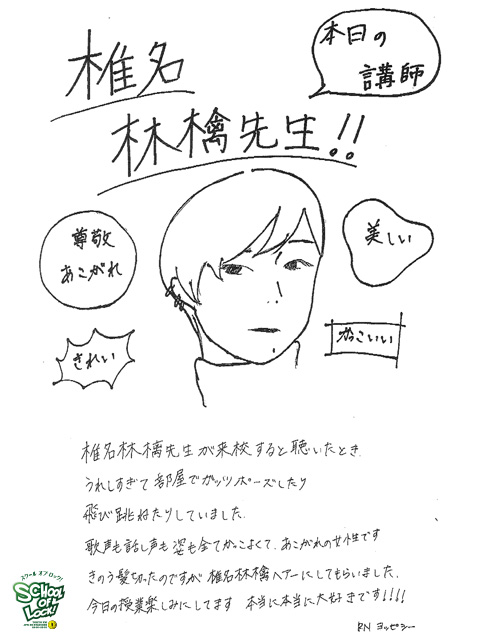 本日の
講師
椎名
林檎先生!!
尊敬
あこがれ
美しい
きれい
かっこいい
椎名林檎先生が来校すると聴いたとき
うれしすぎて部屋でガッツポーズしたり
飛び跳ねたりしていました.
歌声も話し声も姿も全てかっこよくて、あこがれの女性です
きのう髪切ったのですが 椎名林檎ヘアーにしてもらいました.
今日の授業楽しみにしてます 本当に本当に大好きです!!!!
RN ヨッセシー
スクール オブ ロック!
SCHOOL
OF
LOCK!